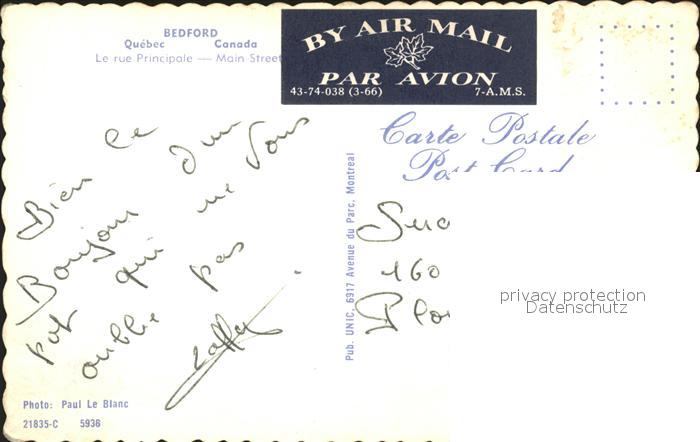 BEDFORD
Québec Canada
Le rue Principale — Main Street
BY AIR MAIL
PAR AVION
43-74-038 (3-66) 7-A.M.S.
Carte Postale
Post Card
Bien ce
Bonjour d'un
pot qui ne vous
oublie pas
Pub. UNIC, 6917 Avenue du Parc, Montreal
160
privacy protection
Datenschutz
Photo: Paul Le Blanc
21835-C 5936